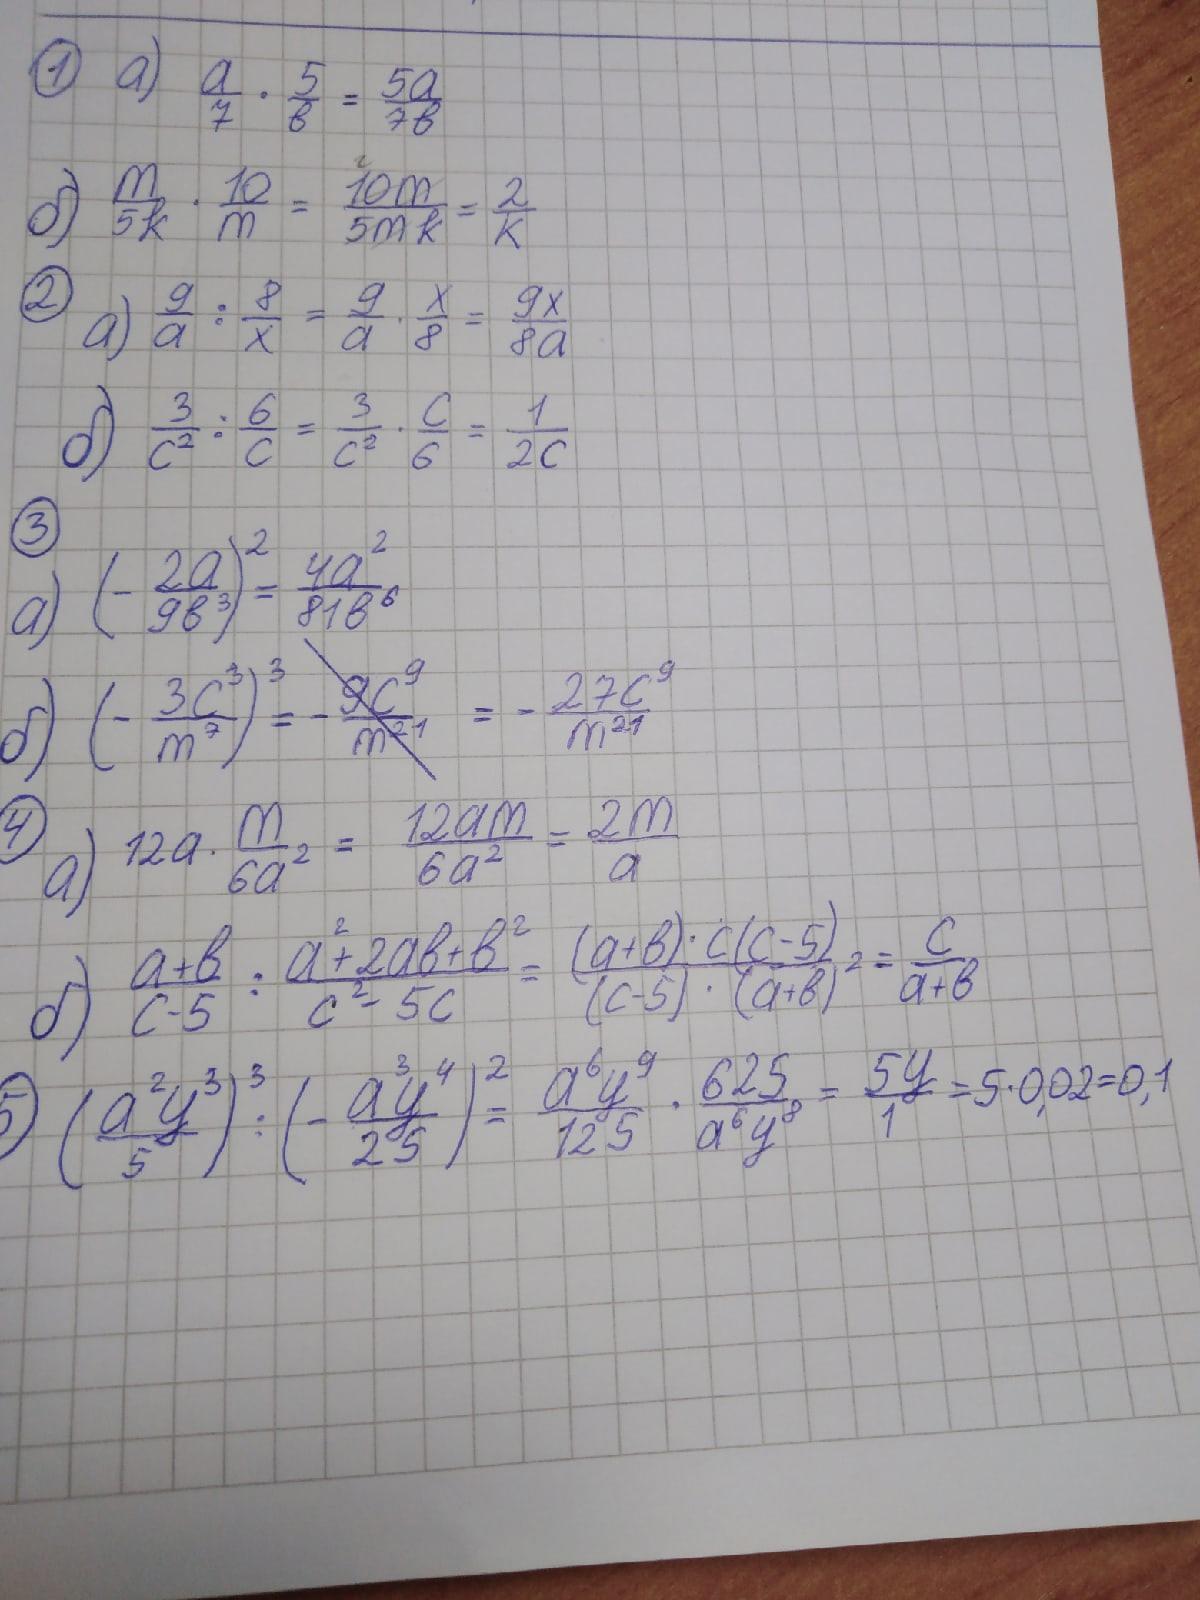 ① а) a/7 · 5/b = 5a/7b
б) m/5k · 10/m = 10m/5mk = 2/k
② а) 9/a : 8/x = 9/a · x/8 = 9x/8a
б) 3/c² : 6/c = 3/c² · c/6 = 1/2c
③
а) (- 2a/9b³)² = 4a²/81b⁶
б) (- 3c³/m⁷)³ = - 9c⁹/m²¹ = - 27c⁹/m²¹
④ а) 12a · m/6a² = 12am/6a² = 2m/a
б) a+b/c-5 : a²+2ab+b²/c²-5c = (a+b)·c(c-5)/(c-5)·(a+b)² = c/a+b
5) (a²y³/5)³ : (- a³y⁴/25)² = a⁶y⁹/125 · 625/a⁶y⁸ = 5y/1 = 5·0,02=0,1